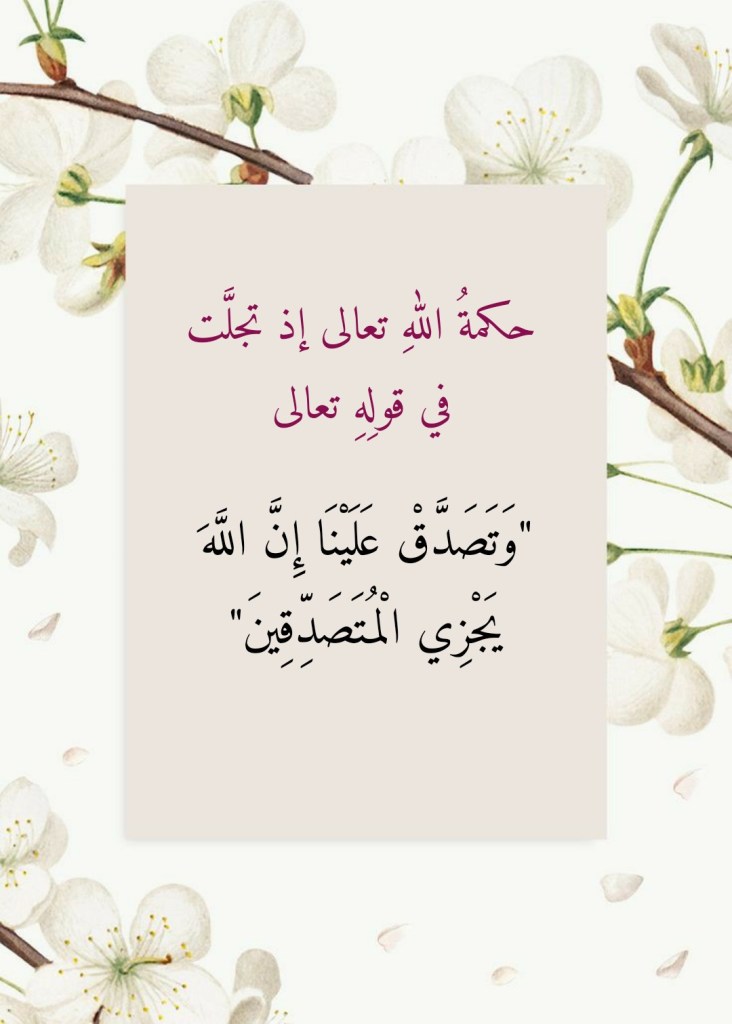 حكمةُ اللهِ تعالى إذ تجلَّت
في قولِهِ تعالى
"وَتَصَدَّقْ عَلَيْنَا إِنَّ اللَّهَ
يَجْزِي الْمُتَصَدِّقِينَ"